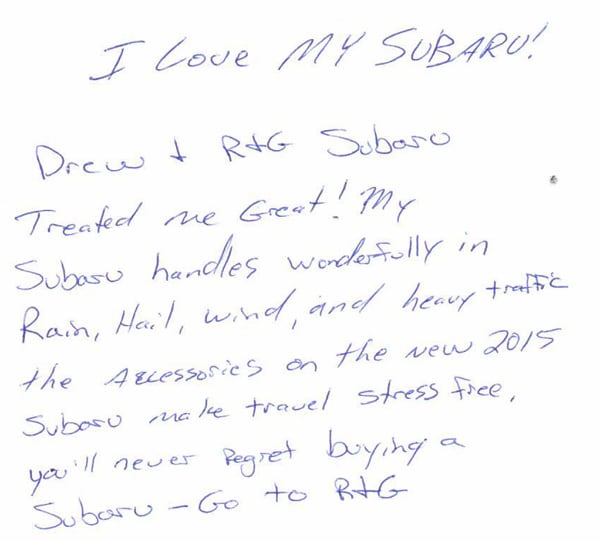 I Love MY SUBARU!
Drew + R+G Subaru
Treated me Great! My
Subaru handles wonderfully in
Rain, Hail, wind, and heavy traffic
the Accessories on the new 2015
Subaru make travel stress free,
you'll never Regret buying a
Subaru - Go to R+G